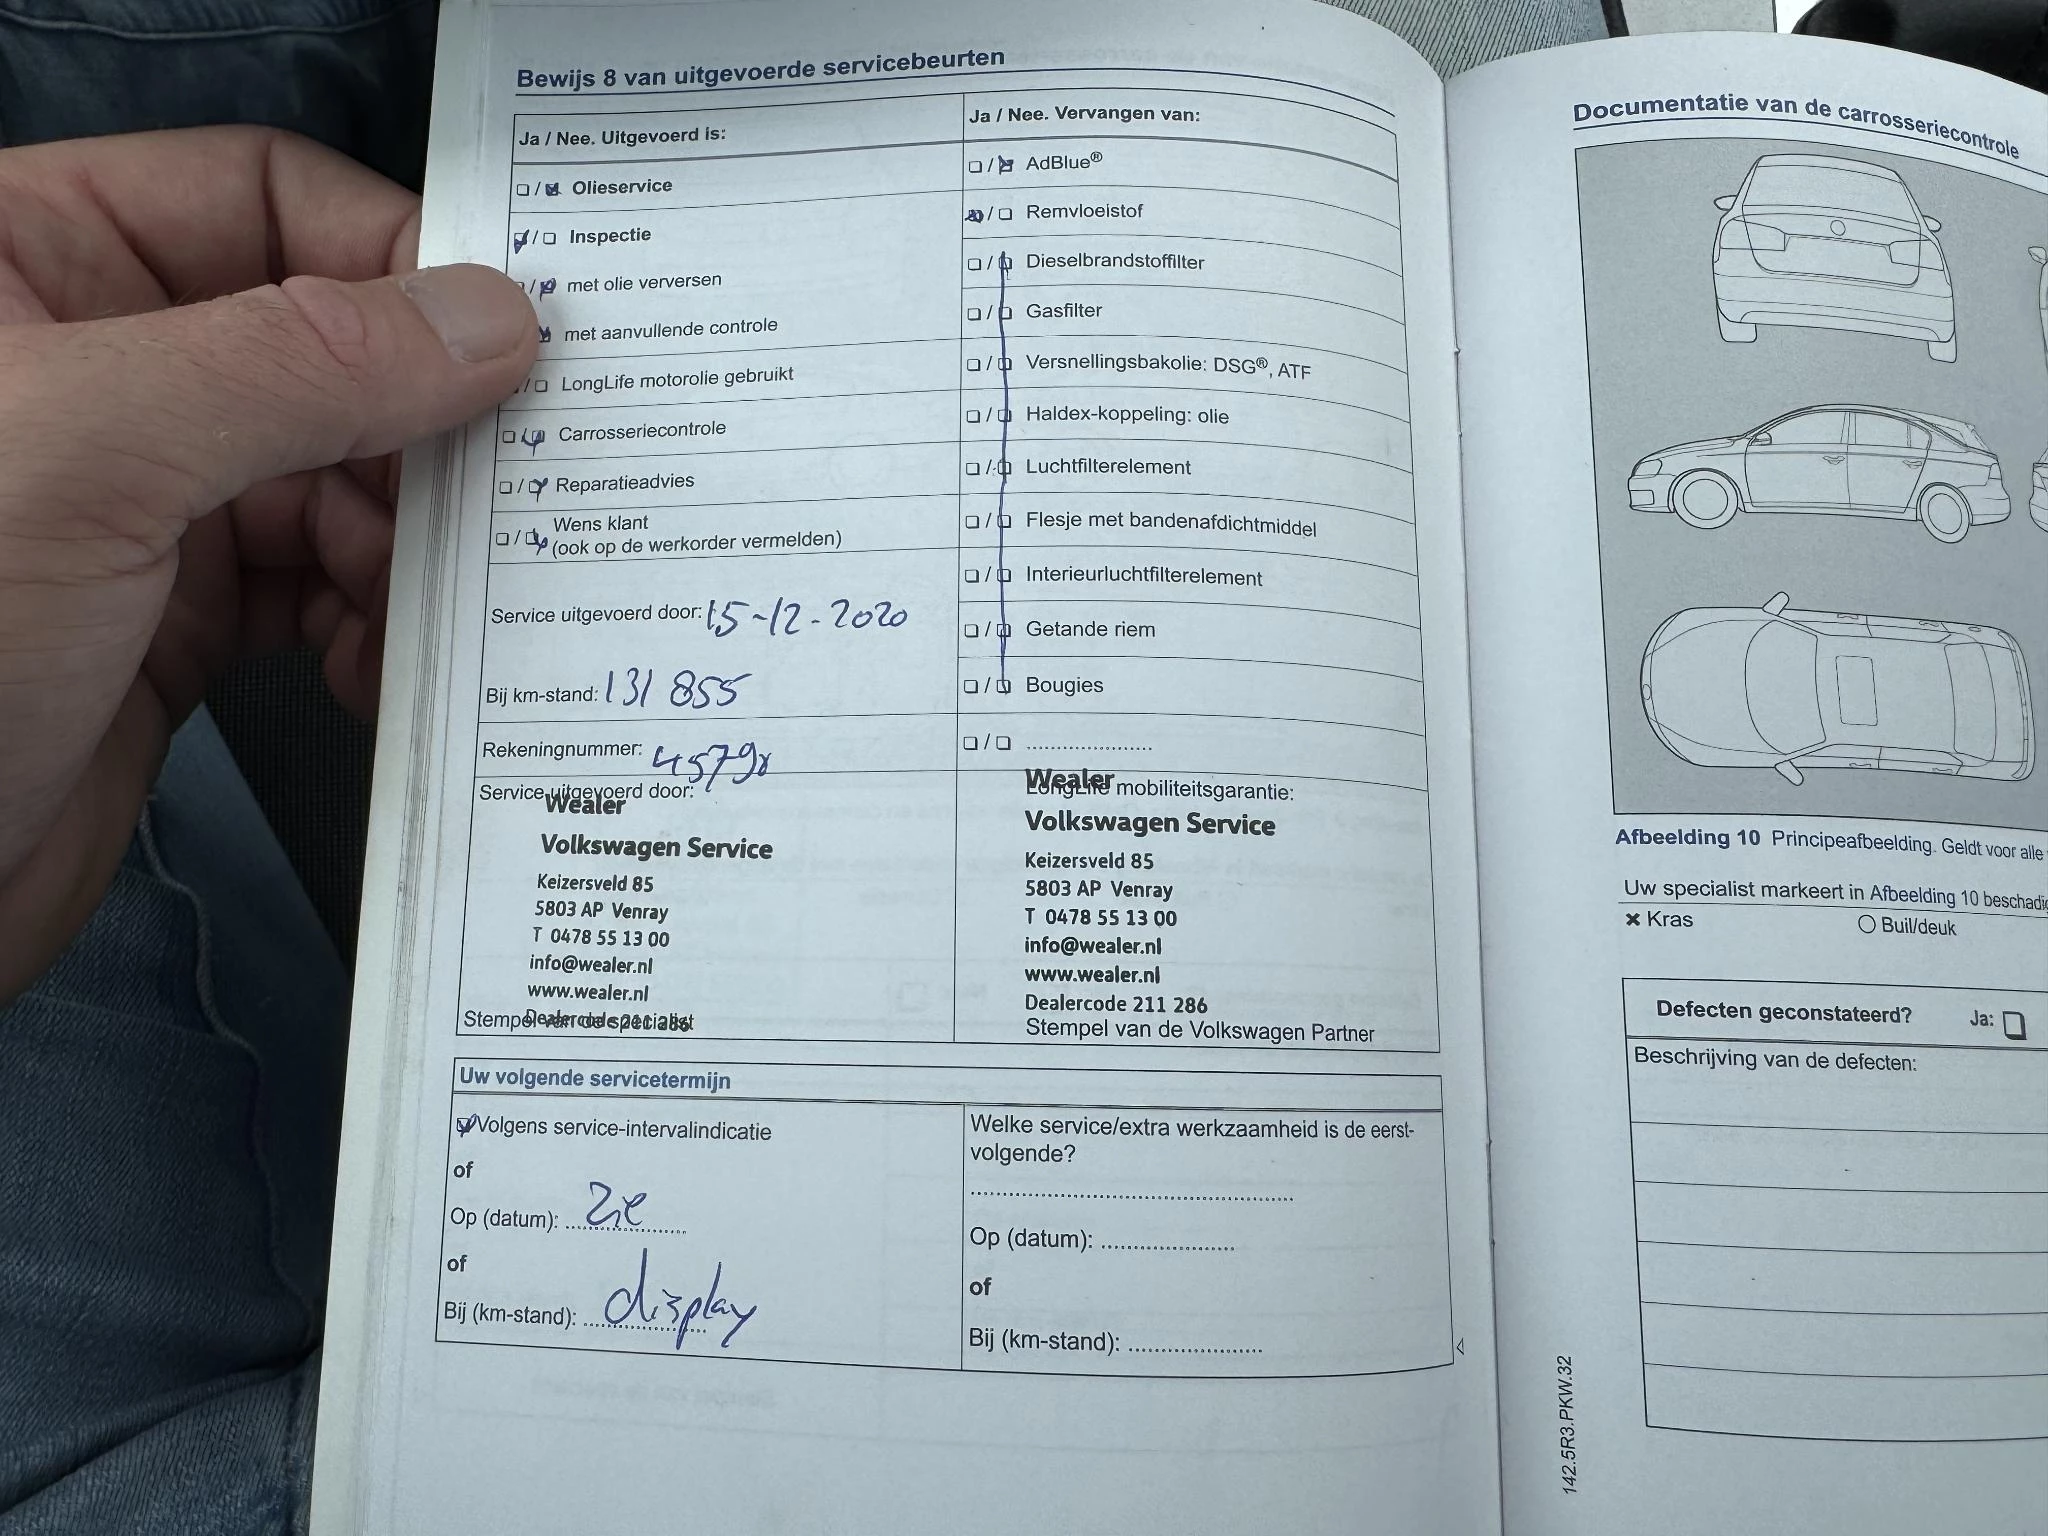 Bewijs 8 van uitgevoerde servicebeurten
Ja / Nee. Uitgevoerd is:
Olieservice
Inspectie
met olie verversen
met aanvullende controle
LongLife motorolie gebruikt
Carrosseriecontrole
Reparatieadvies
Wens klant
(ook op de werkorder vermelden)
Service uitgevoerd door: 15-12-2020
Bij km-stand: 131 855
Rekeningnummer:
Service uitgevoerd door:
Wealer
Volkswagen Service
Keizersveld 85
5803 AP Venray
T 0478 55 13 00
info@wealer.nl
www.wealer.nl
Dealercode 211 286
Stempel van de specialist
Ja / Nee. Vervangen van:
AdBlue®
Remvloeistof
Dieselbrandstoffilter
Gasfilter
Versnellingsbakolie: DSG®, ATF
Haldex-koppeling: olie
Luchtfilterelement
Flesje met bandenafdichtmiddel
Interieurluchtfilterelement
Getande riem
Bougies
Wealer
LongLife mobiliteitsgarantie:
Volkswagen Service
Keizersveld 85
5803 AP Venray
T 0478 55 13 00
info@wealer.nl
www.wealer.nl
Dealercode 211 286
Stempel van de Volkswagen Partner
Uw volgende servicetermijn
Volgens service-intervalindicatie
of
Op (datum): zie
of
Bij (km-stand): display
Welke service/extra werkzaamheid is de eerst-
volgende?
Op (datum):
of
Bij (km-stand):
Documentatie van de carrosseriecontrole
Afbeelding 10 Principeafbeelding. Geldt voor alle
Uw specialist markeert in Afbeelding 10 beschadig
Kras
Buil/deuk
Defecten geconstateerd? Ja:
Beschrijving van de defecten:
142.5R3.PKW.32